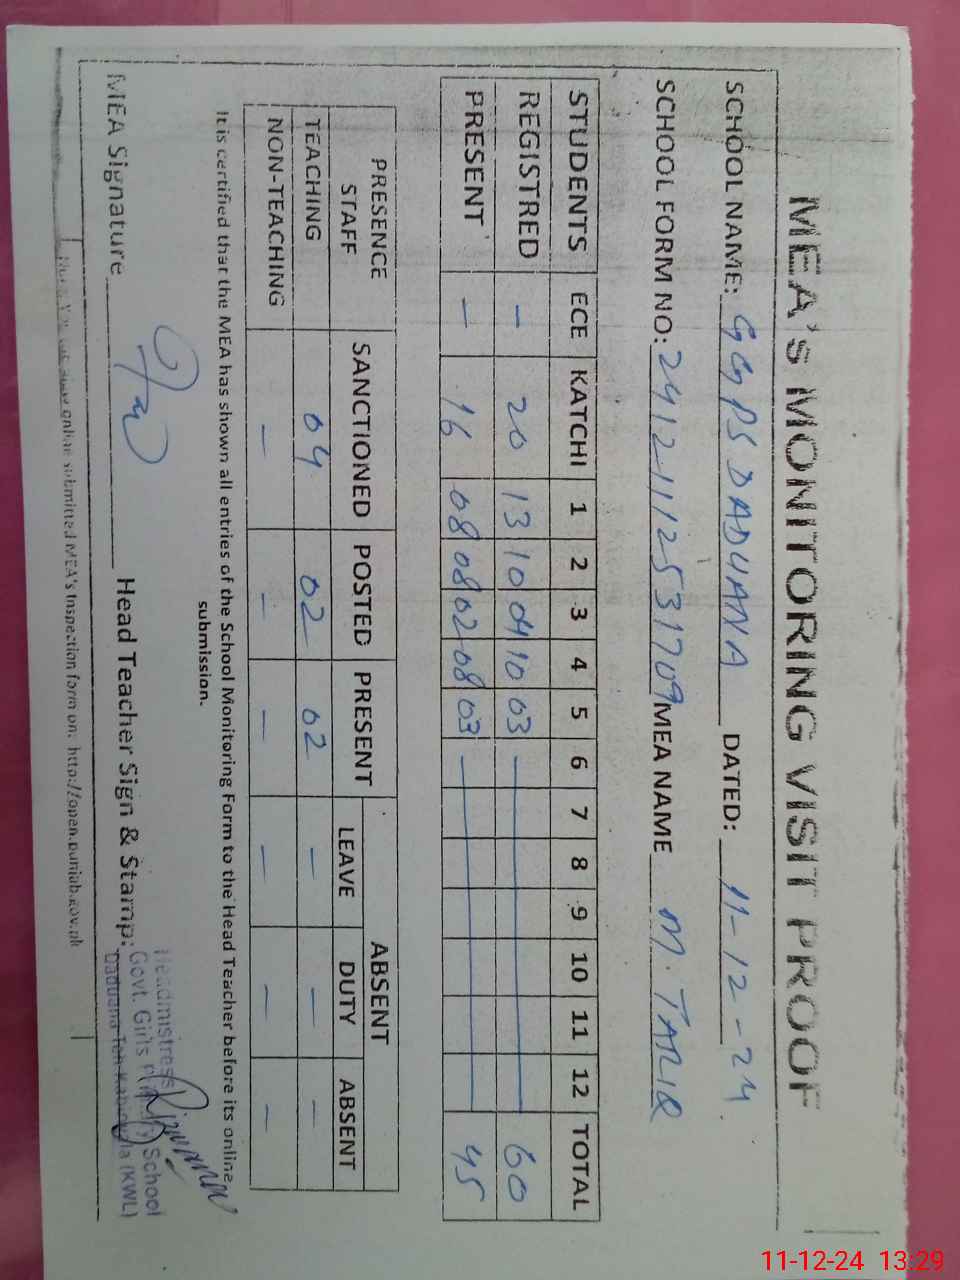 MEA'S MONITORING VISIT PROOF
SCHOOL NAME: GGPS DADUANA DATED: 11-12-24
SCHOOL FORM NO: 24121112531709 MEA NAME M. TARIQ
STUDENTS ECE KATCHI 1 2 3 4 5 6 7 8 9 10 11 12 TOTAL
REGISTRED - 20 13 10 04 10 03 60
PRESENT - 16 08 08 02 08 03 45
PRESENCE STAFF SANCTIONED POSTED PRESENT ABSENT
LEAVE DUTY ABSENT
TEACHING 04 02 02 - - -
NON-TEACHING - - - - - -
It is certified that the MEA has shown all entries of the School Monitoring Form to the Head Teacher before its online
submission.
MEA Signature Head Teacher Sign & Stamp:
Headmistress
Govt. Girls Primary School
Daduana Teh Kabirwala (KWL)
Note: You can view online submitted MEA's Inspection form on: http://open.punjab.gov.pk
11-12-24 13:29